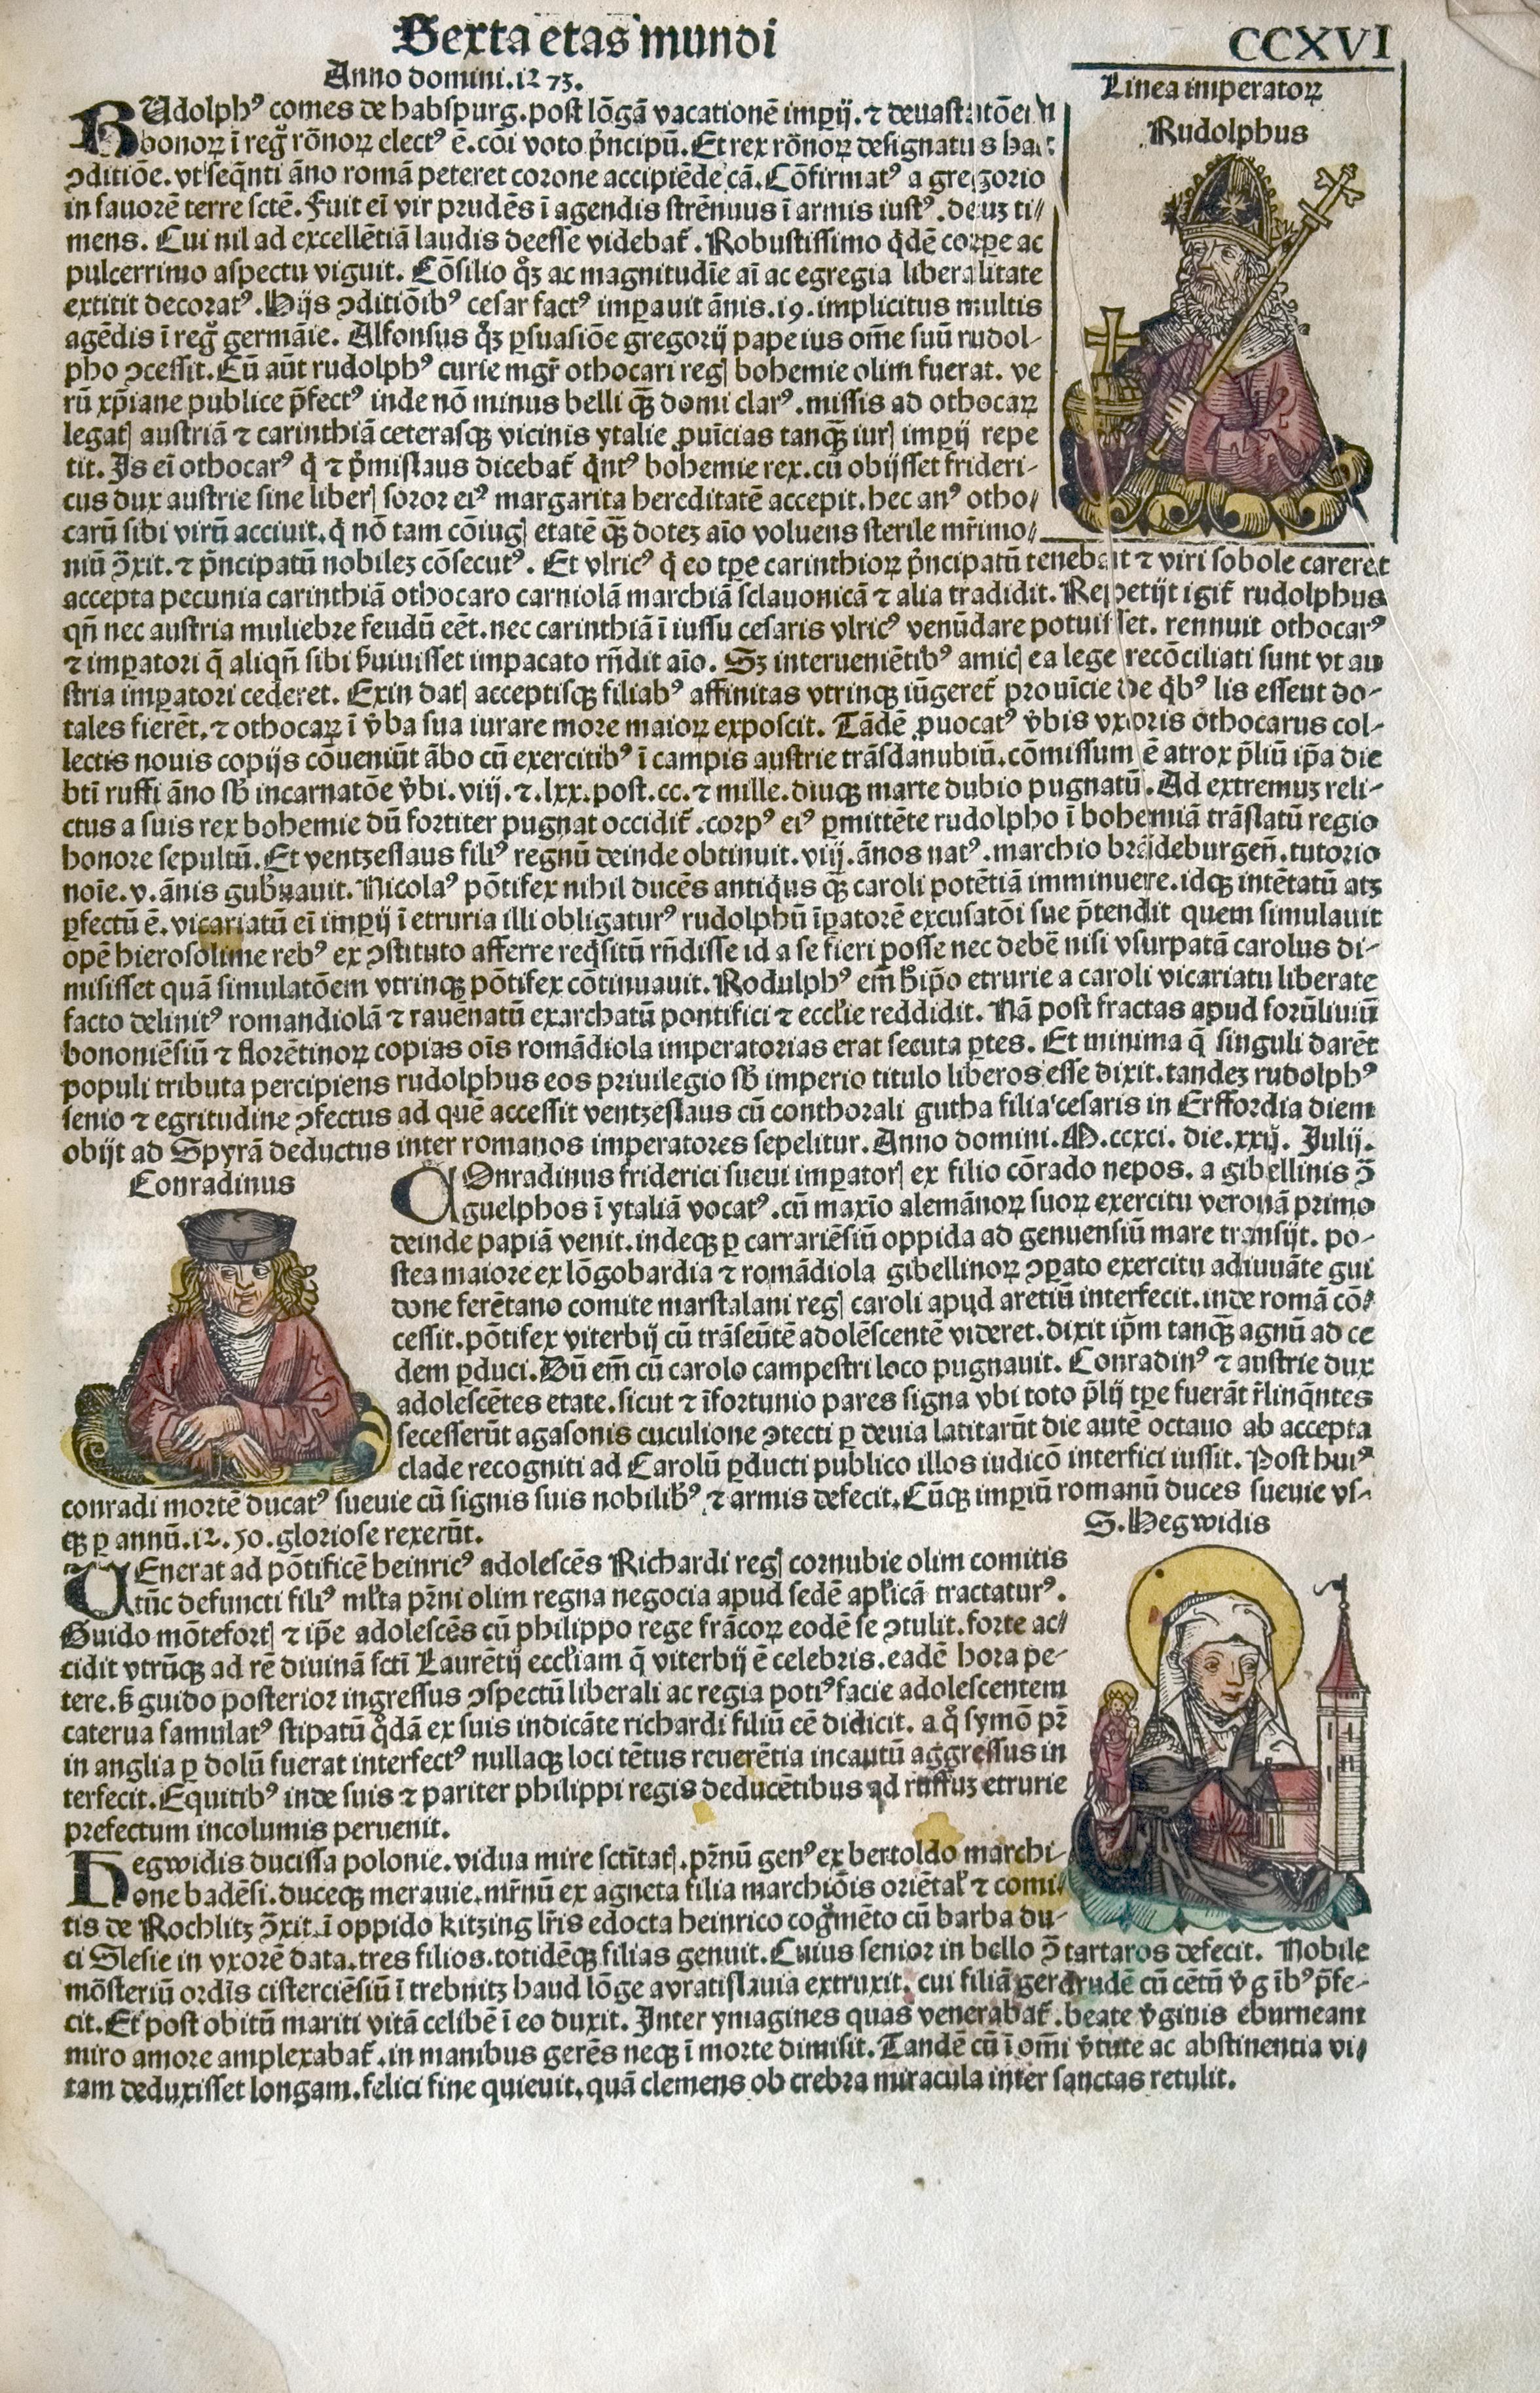 Sexta etas mundi
CCXVI
Anno domini.1273.
Linea imperatoꝝ
Rudolphus
RUdolphꝰ comes de habspurg.post lōgā vacationē impij.⁊ deuastatōeꝫ
bonoꝝ ī reg̃ rōnoꝝ electꝰ ē.cōi voto pͥncipū.Et rex rōnoꝝ designatus hac
ↄditiōe.vt seqͥnti āno romā peteret corone accipiēde cā.Cōfirmatꝰ a gregorio
in fauorē terre sctē.Fuit eī vir prudēs ī agendis strēnuus ī armis iustꝰ.deuꝫ ti⸗
mens. Cui nil ad excellētiā laudis deesse videbat̃. Robustissimo qͥdē corpe ac
pulcerrimo aspectu viguit. Cōsilio qͦꝫ ac magnitudīe aī ac egregia liberalitate
extitit decoratꝰ.Hijs ↄditiōibꝰ cesar factꝰ impauit ānis.19.implicitus multis
agēdis ī reg̃ germāie. Alfonsus qͦꝫ ꝑsuasiōe gregorij pape ius om̄e suū rudol-
pho ↄcessit.Eū aūt rudolphꝰ curie mgr̃ othocari regꝭ bohemie olim fuerat. ve
rū xp̄iane publice p̄fectꝰ inde nō minus belli qͣꝫ domi clarꝰ.missis ad othocaꝝ
legatꝭ austriā ⁊ carinthiā ceterasqꝫ vicinis ytalie ꝓuīcias tanqͣꝫ iurꝭ impij repe
tit. Is eī othocarꝰ qͥ ⁊ pͥmislaus dicebat̃ qͥntꝰ bohemie rex.cū obijsset frideri-
cus dux austrie sine liberꝭ soror eiꝰ margarita hereditatē accepit.hec anꝰ otho⸗
carū sibi virū acciuit.qͥ nō tam cōiugꝭ etatē qͣꝫ doteꝫ aīo voluens sterile mr̄imo⸗
niū ↄ̄xit.⁊ pͥncipatū nobileꝫ cōsecutꝰ. Et vlricꝰ qͥ eo tꝑe carinthioꝝ pͥncipatū tenebat ⁊ viri sobole careret
accepta pecunia carinthiā othocaro carniolā marchiā sclauonicā ⁊ alia tradidit. Repetijt igit̃ rudolphus
qn̄ nec austria muliebre feudū eēt.nec carinthiā ī iussu cesaris vlricꝰ venūdare potuisset. rennuit othocarꝰ
⁊ impatori qͥ aliqn̄ sibi ẜuiuisset impacato rn̄dit aīo. Sꝫ interueniētibꝰ amicꝭ ea lege recōciliati sunt vt au
stria impatori cederet. Exin datꝭ acceptisqꝫ filiabꝰ affinitas vtrinqꝫ iūgeret̃ prouīcie de qͥbꝰ lis essent do-
tales fierēt.⁊ othocaꝝ ī v̓ba sua iurare more maioꝝ exposcit. Tādē ꝓuocatꝰ v̓bis vxoris othocarus col-
lectis nouis copijs cōueniūt ābo cū exercitibꝰ ī campis austrie trāsdanubiū.cōmissum ē atrox p̄liū ip̄a die
btī ruffi āno sb̓ incarnatōe v̓bi.viij.⁊.lxx.post.cc.⁊ mille.diuqꝫ marte dubio pugnatū. Ad extremuꝫ reli-
ctus a suis rex bohemie dū fortiter pugnat occidit̃.corpꝰ eiꝰ ꝑmittēte rudolpho ī bohemiā trāslatū regio
honore sepultū. Et ventzeslaus filiꝰ regnū deinde obtinuit.viij.ānos natꝰ.marchio brādeburgeñ.tutorio
noīe.v.ānis gub̓nauit. Nicolaꝰ pōtifex nihil ducēs antiqͥus qͣꝫ caroli potētiā imminuere.idqꝫ intētatū atqꝫ
ꝑfectū ē.vicariatū eī impij ī etruria illi obligaturꝰ rudolphū īpatorē excusatōi sue p̄tendit quem simulauit
opē hierosolime rebꝰ ex ↄstituto afferre reqͥsitū rn̄disse id a se fieri posse nec debē nisi vsurpatā carolus di-
misisset quā simulatōem vtrinqꝫ pōtifex cōtinuauit. Rodulphꝰ em̄ h̓ ip̄o etrurie a caroli vicariatu liberate
facto delinitꝰ romandiolā ⁊ rauenatū exarchatū pontifici ⁊ eccl̓ie reddidit. Nā post fractas apud forūliuiū
bononiēsiū ⁊ florētinoꝝ copias oīs romādiola imperatorias erat secuta ꝑtes. Et minima qͣ singuli darēt
populi tributa percipiens rudolphus eos priuilegio sb̓ imperio titulo liberos esse dixit.tandeꝫ rudolphꝰ
senio ⁊ egritudine ↄfectus ad quē accessit ventzeslaus cū conthorali gutha filia cesaris in Erffordia diem
obijt ad Spyrā deductus inter romanos imperatores sepelitur. Anno domini.M.ccxci. die.xxij. Julij.
Conradinus
COnradinus friderici sueui impatorꝭ ex filio cōrado nepos. a gibellinis ↄ̄
guelphos ī ytaliā vocatꝰ.cū maxīo alemānoꝝ suoꝝ exercitu veronā primo
deinde papiā venit.indeqꝫ ꝑ carrariēsiū oppida ad genuensiū mare transijt. po-
stea maiore ex lōgobardia ⁊ romādiola gibellinoꝝ ↄꝑato exercitu adiuuāte gui
done feretano comite marstalani regꝭ caroli apud aretiū interfecit.inde romā cō⸗
cessit.pōtifex viterbij cū trāseūtē adolēscentē videret.dixit ip̄m tanqͣꝫ agnū ad ce
dem ꝑduci.Dū em̄ cū carolo campestri loco pugnauit. Conradinꝰ ⁊ austrie dux
adolescētes etate.sicut ⁊ īfortunio pares signa vbi toto p̄lij tꝑe fuerāt r̄linqͥntes
secesserūt agasonis cuculione ↄtecti ꝑ deuia latitarūt die autē octauo ab accepta
clade recogniti ad Carolū ꝑducti publico illos iudicō interfici iussit. Post huiꝰ
conradi mortē ducatꝰ sueuie cū signis suis nobilibꝰ ⁊ armis defecit. Cūqꝫ impiū romanū duces sueuie vs-
qꝫ ꝑ annū.12.50.gloriose rexerūt.
S.Hegwidis
VEnerat ad pōtificē heinricꝰ adolescēs Richardi regꝭ cornubie olim comitis
tūc defuncti filiꝰ ml̓ta pr̄ni olim regna negocia apud sedē apl̓icā tractaturꝰ.
Guido mōtefortꝭ ⁊ ip̄e adolescēs cū philippo rege frācoꝝ eodē se ↄtulit.forte ac⸗
cidit vtrūqꝫ ad rē diuinā sctī Laurētij eccl̓iam qͥ viterbij ē celebris.eadē hora pe-
tere.ẜ guido posterior ingressus ↄspectū liberali ac regia potiꝰ facie adolescentem
caterua famulatꝰ stipatū qͦdā ex suis indicāte richardi filiū eē didicit. a qͦ symō pr̄
in anglia ꝑ dolū fuerat interfectꝰ nullaqꝫ loci tētus reuerētia incautū aggressus in
terfecit.Equitibꝰ inde suis ⁊ pariter philippi regis deducētibus ad ruffuꝫ etrurie
prefectum incolumis peruenit.
Hegwidis ducissa polonie.vidua mire sctītatꝭ.pr̄nū genꝰ ex bertoldo marchi-
one badēsi.duceqꝫ merauie.mr̄nū ex agneta filia marchiōis oriētal̓ ⁊ comi⸗
tis de Rochlitz ↄ̄xit.ī oppido kitzing lr̄is edocta heinrico cog̃mēto cū barba du-
ci Slesie in vxorē data.tres filios.totidēqꝫ filias genuit.Cuius senior in bello ↄ̄ tartaros defecit. Nobile
mōsteriū ordīs cisterciēsiū ī trebnitz haud lōge a vratislauia extruxit. cui filiā gerdrudē cū cetū v̓gībꝰ p̄fe-
cit.Et post obitū mariti vitā celibē ī eo duxit. Inter ymagines quas venerabat̃.beate v̓ginis eburneam
miro amore amplexabat̃.in manibus gerēs neqꝫ ī morte dimisit. Tandē cū ī om̄i v̓tute ac abstinentia vi⸗
tam deduxisset longam.felici fine quieuit.quā clemens ob crebra miracula inter sanctas retulit.